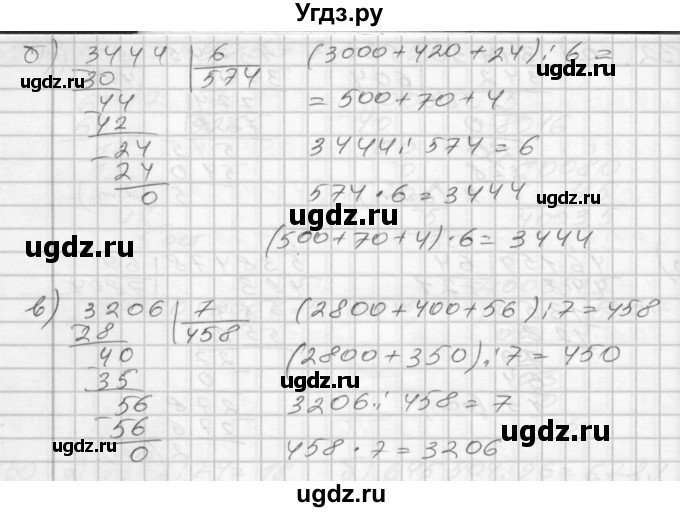 Угдз.ру
б) 3444 | 6 (3000+420+24):6=
30 574
44 = 500+70+4
42
24 3444:574=6
24
0 574·6=3444
(500+70+4)·6=3444
в) 3206 | 7 (2800+400+56):7=458
28 458
40 (2800+350):7=450
35
56 3206:458=7
56
0 458·7=3206
ugdz.ru
ugdz.ru
ugdz.ru
ugdz.ru
ugdz.ru
ugdz.ru
ugdz.ru
ugdz.ru
ugdz.ru
ugdz.ru
ugdz.ru
ugdz.ru